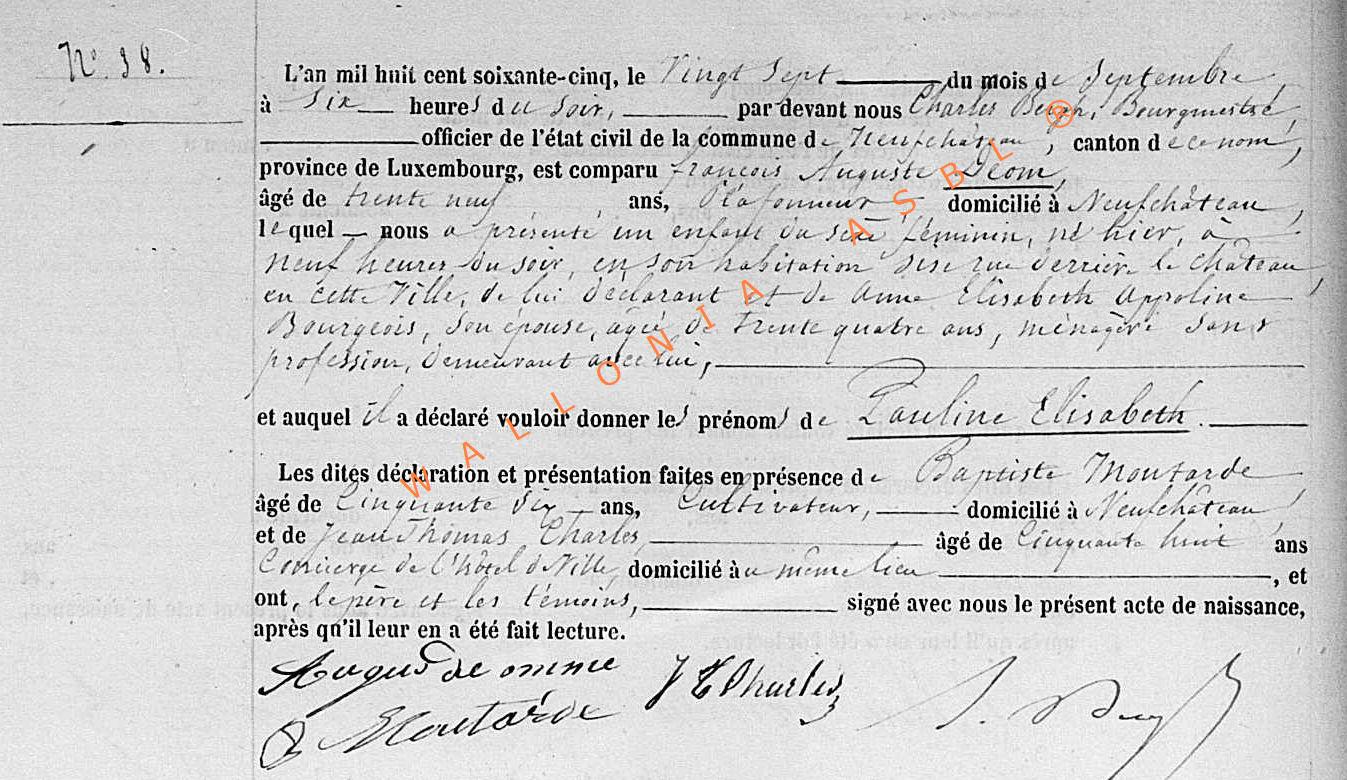 N° 38.
L'an mil huit cent soixante-cinq, le Vingt Sept du mois de Septembre,
à Six heures du Soir, par devant nous Charles Bergh, Bourgmestre,
officier de l'état civil de la commune de Neufchâteau, canton de ce nom,
province de Luxembourg, est comparu françois Auguste Déom,
âgé de trente neuf ans, Plafonneur domicilié à Neufchâteau,
lequel nous a présenté un enfant du sexe féminin, né hier, à
neuf heures du soir, en son habitation sise rue derrière le château,
en cette Ville, de lui déclarant et de Anne Elisabeth Appoline
Bourgeois, son épouse, agée de trente quatre ans, ménagère sans
profession, demeurant avec lui,
et auquel il a déclaré vouloir donner les prénoms de Pauline Elisabeth.
Les dites déclaration et présentation faites en présence de Baptiste Moutarde,
âgé de Cinquante Six ans, Cultivateur, domicilié à Neufchâteau,
et de Jean Thomas Charles, âgé de Cinquante huit ans
Concierge de l'hôtel de Ville, domicilié au même lieu, et
ont, le père et les témoins, signé avec nous le présent acte de naissance,
après qu'il leur en a été fait lecture.
J T Charles
B Moutarde
WALLONIA ASBL ®